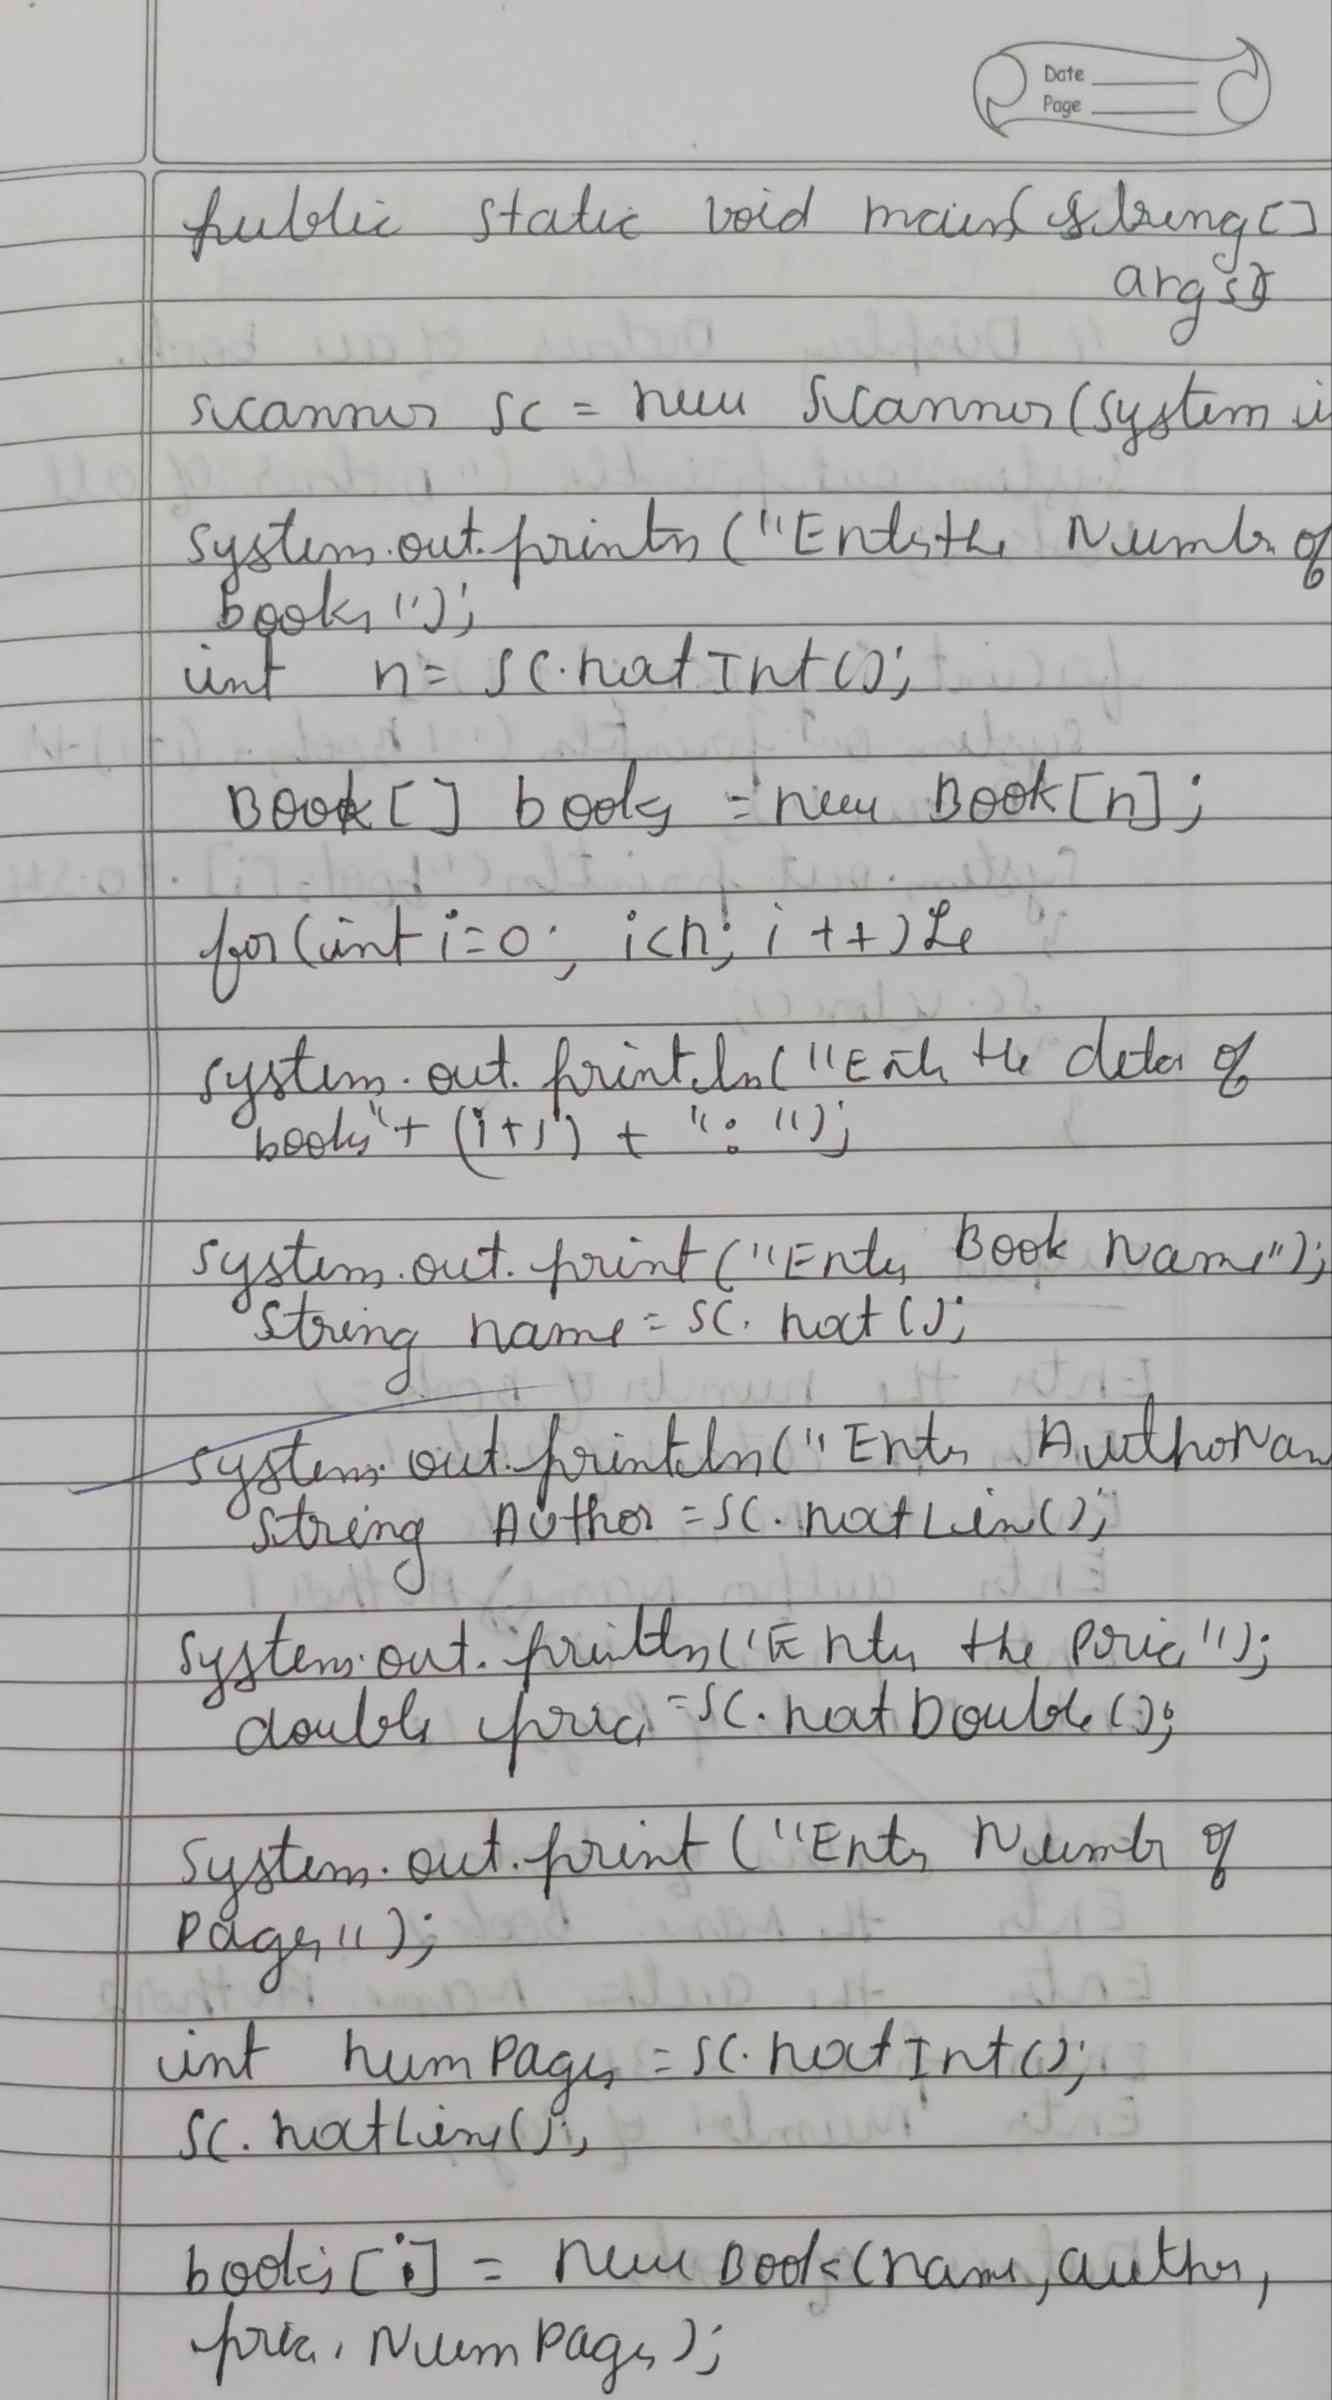 Date
Page
public static void main(String[]
args){
scanner sc = new Scanner(system.in
system.out.println("Enter the Number of
books");
int n = sc.nextInt();
Book[] books = new Book[n];
for(int i=0; i<n; i++){
system.out.println("Enter the details of
books"+ (i+1) + ": ");
system.out.print("Enter Book Name");
String name = sc.next();
system.out.println("Enter AuthorNam
String Author = sc.nextLine();
system.out.println("Enter the Price");
double price = sc.nextDouble();
system.out.print("Enter Number of
Pages");
int numPages = sc.nextInt();
sc.nextLine();
books[i] = new Book(name, author,
price, NumPages);